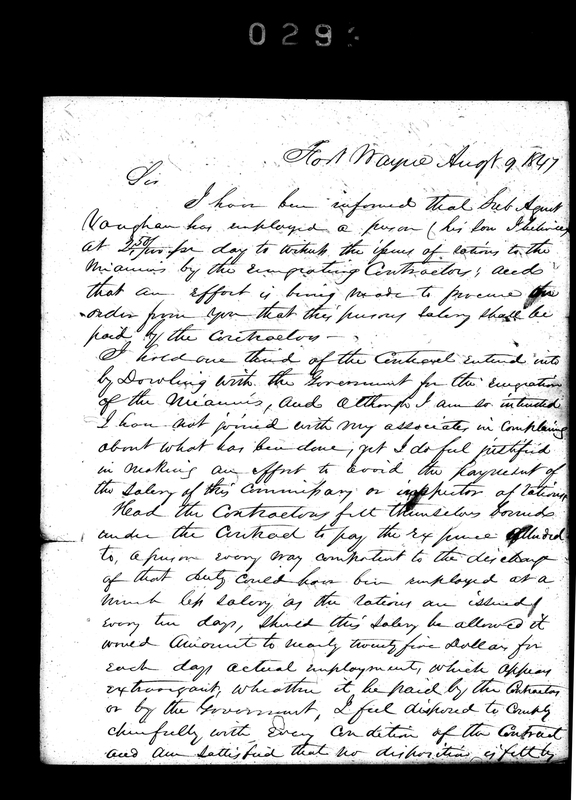 029
Fort Wayne Augt 9 1847
Sir
I have been informed that Sub Agent
Vaughan has employed a person (his son I believe)
at 2 50/100 per day to witness the issues of rations to the
Miamies by the emigrating Contractors; and
that an effort is being made to procure an
order from you that this persons salary shall be
paid by the contractors —
I hold one third of the Contract entered into
by Dowling with the Government for the emigration
of the Miamies, and although I am so interested
I have not joined with my associates in complaining
about what has been done, yet I do feel justified
in making an effort to avoid the payment of
the salary of this Commissary or inspector of rations
Had the Contractors felt themselves bound
under the Contract to pay the expence alluded
to, a person every way competent to the discharge
of that duty could have been employed at a
much less salary, as the rations are issued
every ten days, should this salary be allowed it
would amount to nearly twenty five Dollars for
each days actual employment, which appears
extravagant, wheather it be paid by the Contractors
or by the Government, I feel disposed to comply
cheerfully with every condition of the Contract
and am satisfied that no disposition is felt by